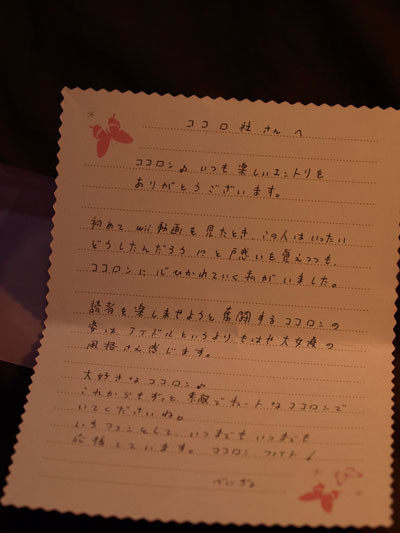 ココロ社さんへ
ココロン♪いつも楽しいエントリを
ありがとうございます。
初めてwii動画を見たとき、この人はいったい
どうしたんだろう!?と戸惑いを覚えつつも、
ココロンに心ひかれていく私がいました。
読者を楽しませようと奮闘するココロンの
姿は アイドルというよりもはや大女優の
風格さえ感じます。
大好きなココロン♪
これからもずっと素敵でキュートなココロンで
いてくださいね。
いちファンとして、いつまでもいつまでも
応援しています。ココロン、ファイト!